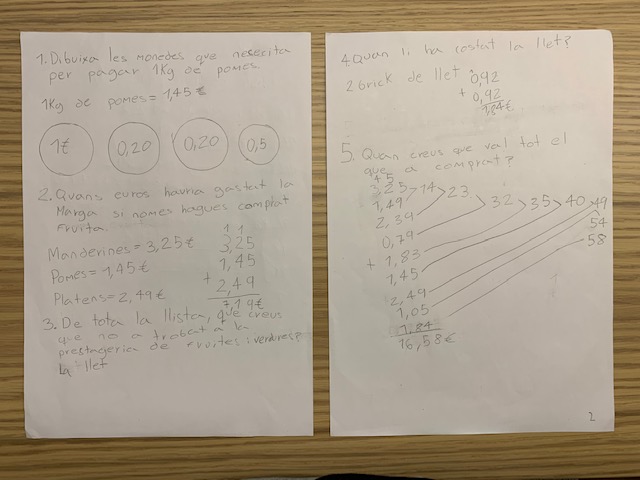 1. Dibuixa les monedes que nesecita
per pagar 1Kg de pomes
1Kg de pomes = 1,45 €
1€ 0,20 0,20 0,5
2. Quans euros hauria gastat la
Marga si nomes hagues complat
Fruita.
Manderines = 3,25 €
Pomes = 1,45 €
Platens = 2,49 €
1 1
3,25
1,45
+ 2,49
7,19 €
3. De tota la llista, que creus
que no a trobat a la
prestageria de fruites i verdures?
La llet
4. Quan li ha costat la llet?
2 brick de llet 0,92
+ 0,92
1,84 €
5. Quan creus que val tot el
que a comprat?
4 5
3,25 14 23
1,49
2,39 32 35 40 49
0,79 54
+ 1,83 58
1,45
2,49
1,05
1,84
16,58 €
2